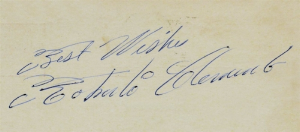 Best Wishes
Roberto Clemente